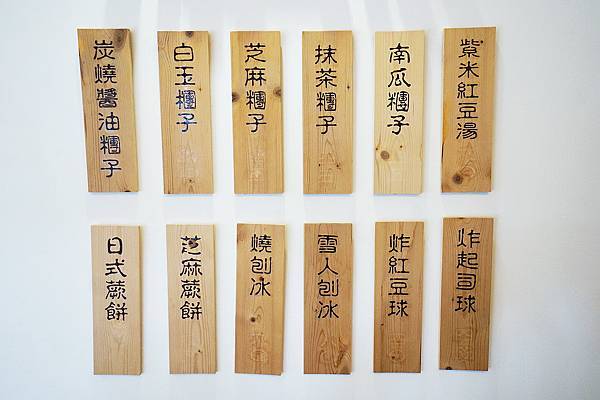 紫米紅豆湯
南瓜糰子
抹茶糰子
芝麻糰子
白玉糰子
炭燒醬油糰子
炸起司球
炸紅豆球
雪人刨冰
燒刨冰
芝麻蕨餅
日式蕨餅